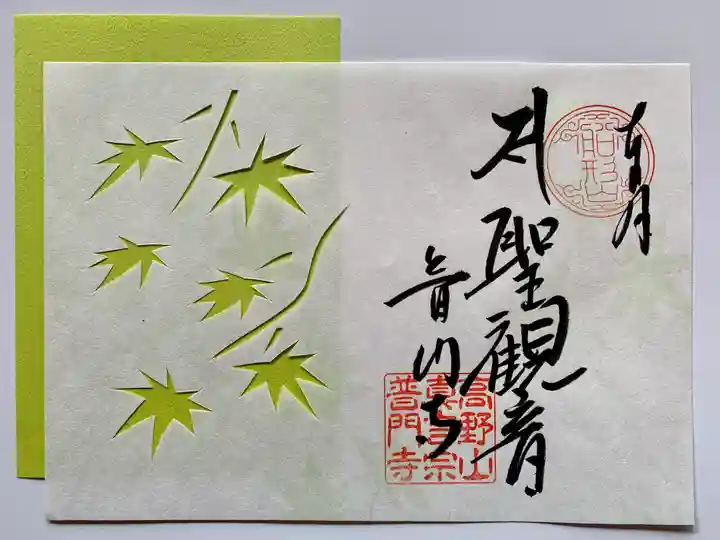 奉拝
聖観音
普門寺
船形山
高野山
真言宗
普門寺